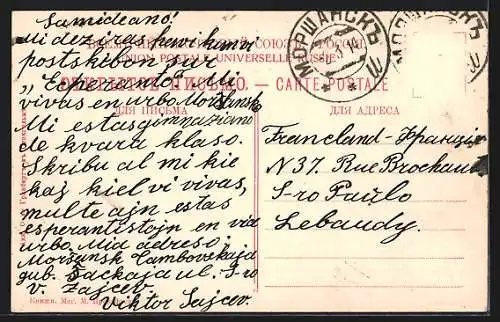 Samideano!
Mi deziras kun vi
postskribu gu
„Esperanto“. Mi
vivas en urbo Morŝansk.
Mi estas gimnaziano
de kvara klaso.
Skribu al mi kie
kaj kiel vi vivas,
multe ajn estas
esperantistojn en via
urbo. Mia adreso:
Morŝansk Tambovskaja
gub. ul. S-ro
V. Zajcev.
Viktor Sajcev.
ВСЕМІРНЫЙ ПОЧТОВЫЙ СОЮЗЪ РОССІЯ
UNION POSTALE UNIVERSELLE RUSSIE
ОТКРЫТОЕ ПИСЬМО. — CARTE POSTALE
ДЛЯ ПИСЬМА
ДЛЯ АДРЕСА
МОРШАНСКЪ
МОРШАНСКЪ
Francland-Франція
N 37. Rue Brochau
S-ro Paulo
Lebaudy.
Книжн. Маг. М.